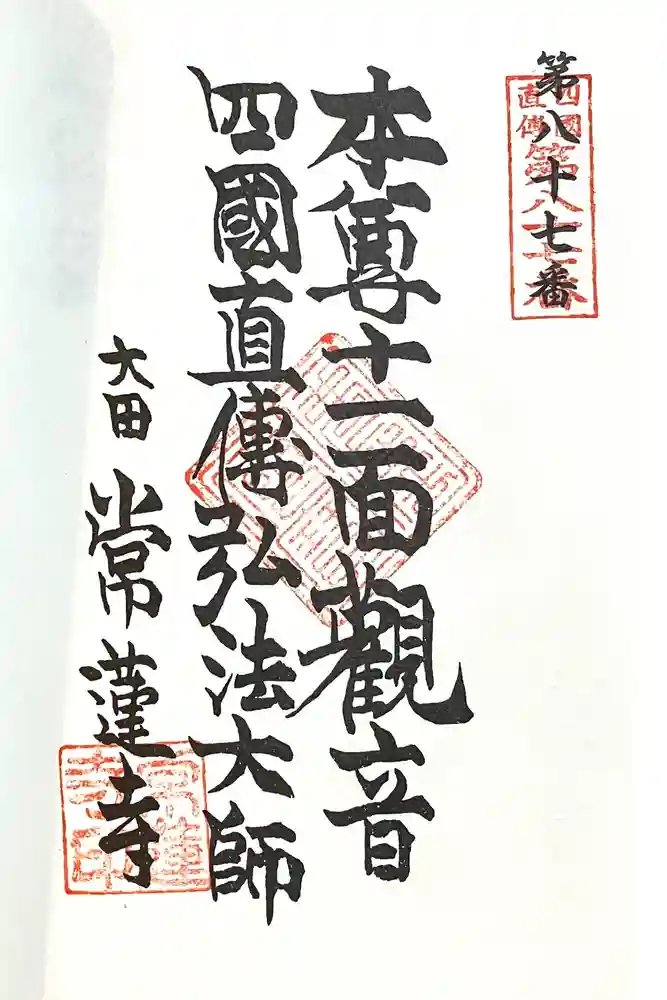 第八十七番
四國直傳
第八十七番
本尊十一面觀音
四國直傳弘法大師
大田
常蓮寺